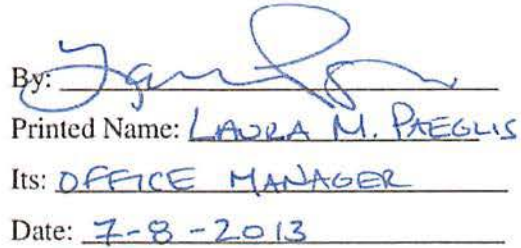 By:
Printed Name: LAURA M. PAEGLIS
Its: OFFICE MANAGER
Date: 7-8-2013